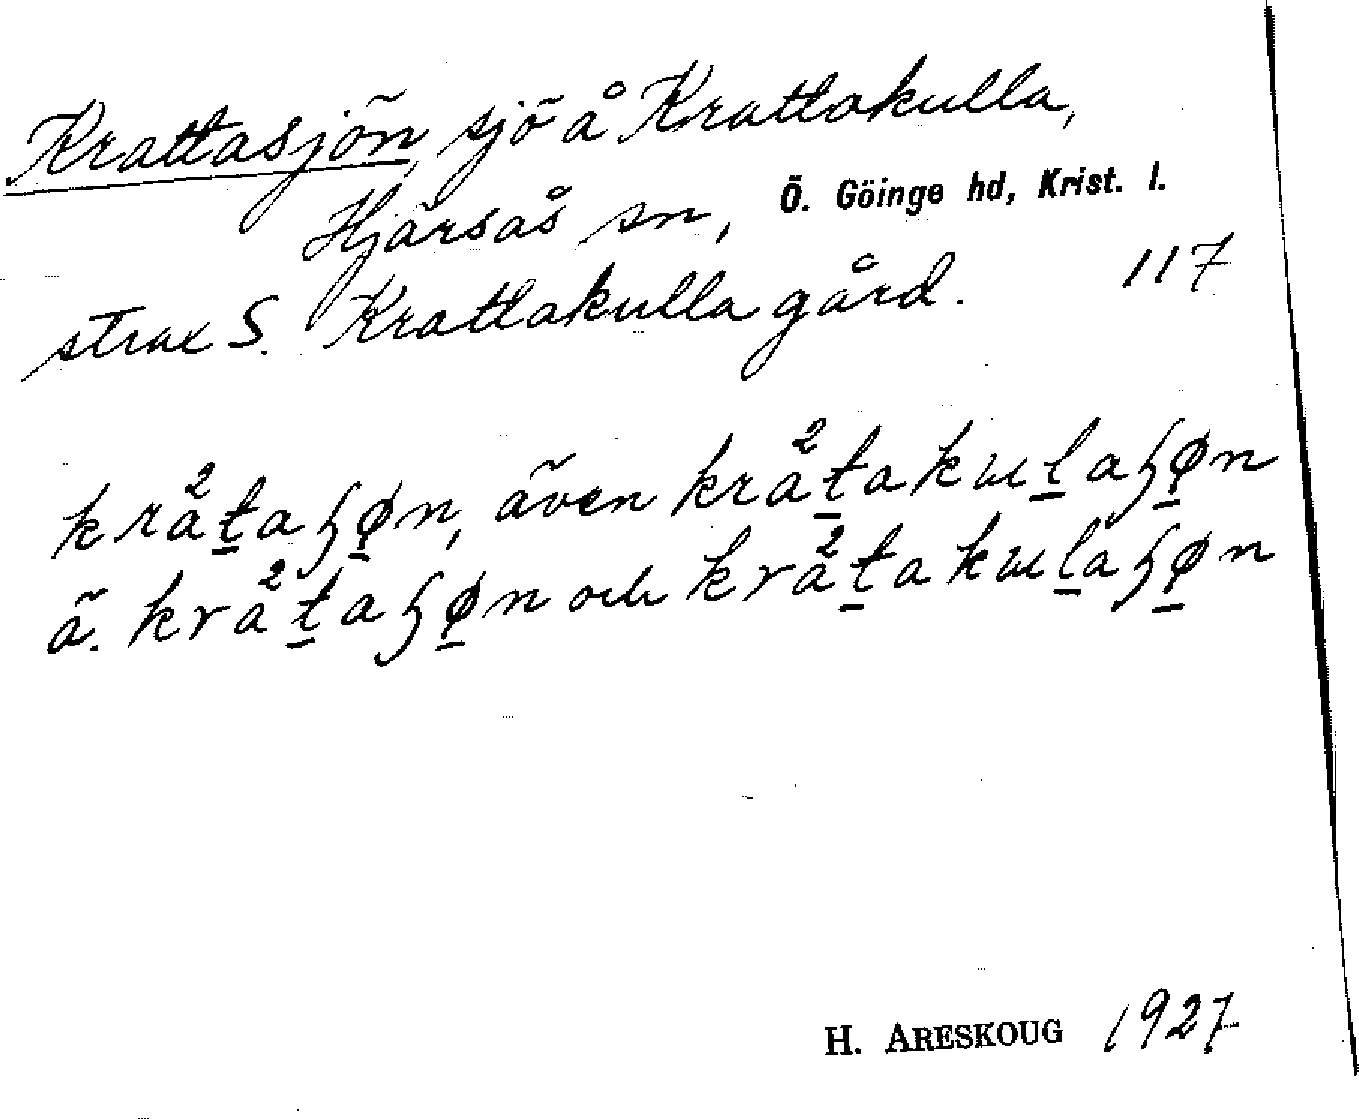 Krattasjön, sjö å Krattakulla,
Hjärsås sn, Ö. Göinge hd, Krist. l.
strax S. Krattakulla gård. 117
krå²t̲aɧø̲n, även krå²t̲akul̲aɧø̲n
ä. krå²t̲aɧø̲n och krå²t̲akul̲aɧø̲n
H. ARESKOUG 1927